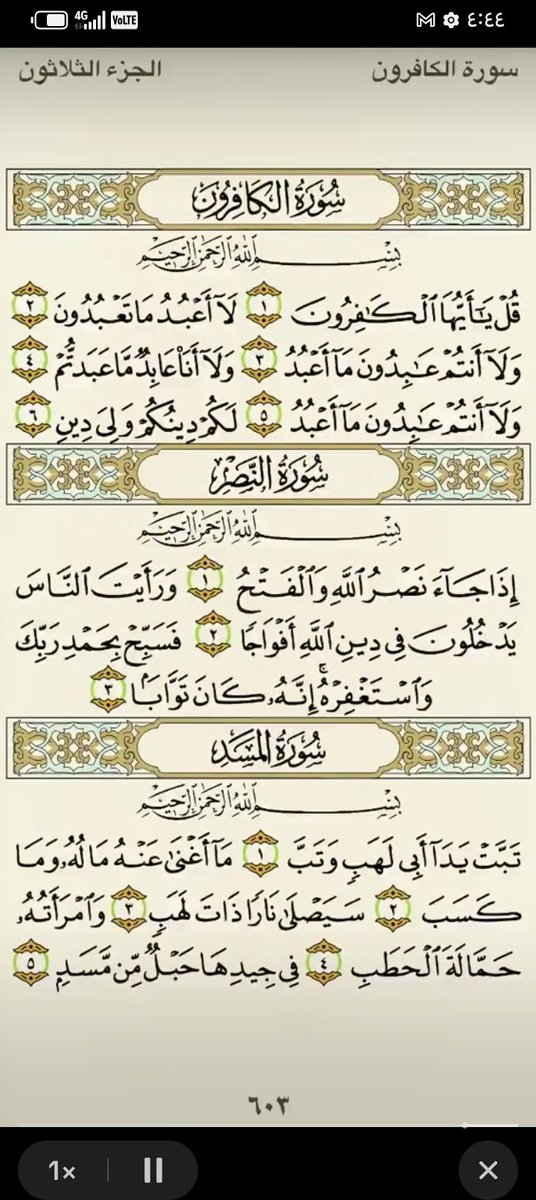 4G VoLTE ٤:٤٤
سورة الكافرون الجزء الثلاثون
سُورَةُ الكَافِرُونَ
بِسْمِ اللَّهِ الرَّحْمَٰنِ الرَّحِيمِ
قُلْ يَٰٓأَيُّهَا ٱلْكَٰفِرُونَ ١ لَآ أَعْبُدُ مَا تَعْبُدُونَ ٢
وَلَآ أَنتُمْ عَٰبِدُونَ مَآ أَعْبُدُ ٣ وَلَآ أَنَا۠ عَابِدٌ مَّا عَبَدتُّمْ ٤
وَلَآ أَنتُمْ عَٰبِدُونَ مَآ أَعْبُدُ ٥ لَكُمْ دِينُكُمْ وَلِىَ دِينِ ٦
سُورَةُ النَّصْرِ
بِسْمِ اللَّهِ الرَّحْمَٰنِ الرَّحِيمِ
إِذَا جَآءَ نَصْرُ ٱللَّهِ وَٱلْفَتْحُ ١ وَرَأَيْتَ ٱلنَّاسَ
يَدْخُلُونَ فِى دِينِ ٱللَّهِ أَفْوَاجًا ٢ فَسَبِّحْ بِحَمْدِ رَبِّكَ
وَٱسْتَغْفِرْهُ ۚ إِنَّهُۥ كَانَ تَوَّابًۢا ٣
سُورَةُ المَسَدِ
بِسْمِ اللَّهِ الرَّحْمَٰنِ الرَّحِيمِ
تَبَّتْ يَدَآ أَبِى لَهَبٍ وَتَبَّ ١ مَآ أَغْنَىٰ عَنْهُ مَالُهُۥ وَمَا
كَسَبَ ٢ سَيَصْلَىٰ نَارًا ذَاتَ لَهَبٍ ٣ وَٱمْرَأَتُهُۥ
حَمَّالَةَ ٱلْحَطَبِ ٤ فِى جِيدِهَا حَبْلٌ مِّن مَّسَدٍۭ ٥
٦٠٣
1×